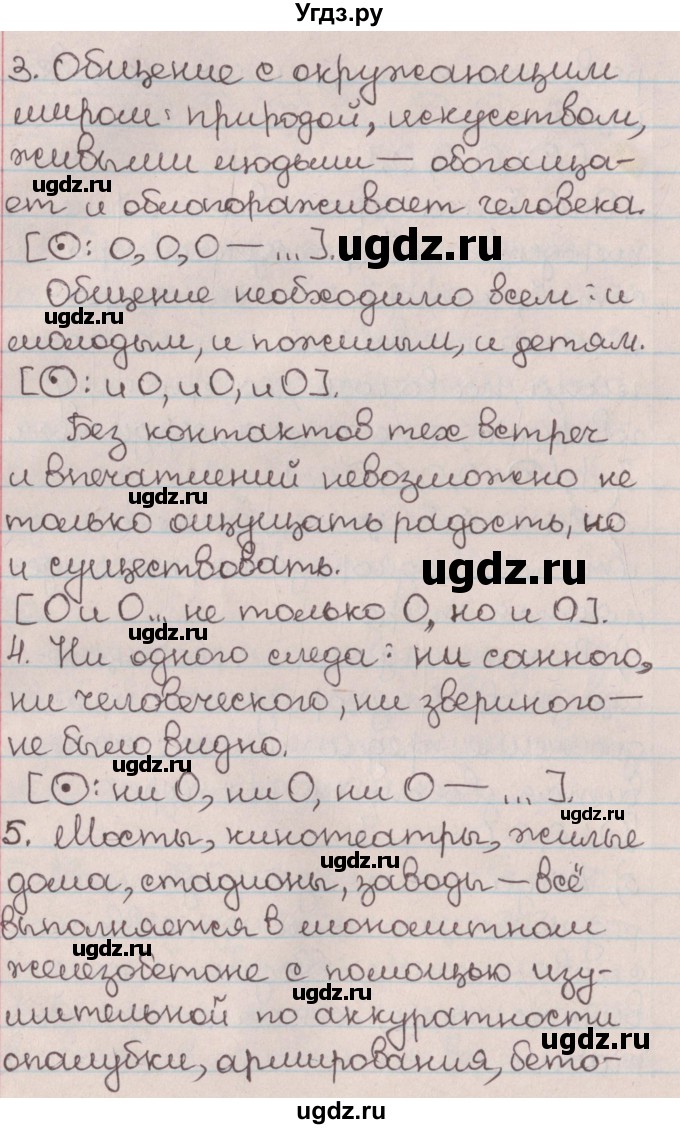 Угдз.ру
3. Общение с окружающим
миром: природой, искусством,
живыми людьми — обогаща-
ет и облагораживает человека.
[⊙: О, О, О — ...].
Общение необходимо всем: и
молодым, и пожилым, и детям.
[⊙: и О, и О, и О].
Без контактов тех встреч
и впечатлений невозможно не
только ощущать радость, но
и существовать.
[О и О... не только О, но и О].
4. Ни одного следа: ни санного,
ни человеческого, ни звериного —
не было видно.
[⊙: ни О, ни О, ни О — ...].
5. Мосты, кинотеатры, жилые
дома, стадионы, заводы — всё
выполняется в монолитном
железобетоне с помощью изу-
мительной по аккуратности
опалубки, армирования, бето-
ugdz.ru
ugdz.ru
ugdz.ru
ugdz.ru
ugdz.ru
ugdz.ru
ugdz.ru
ugdz.ru
ugdz.ru
ugdz.ru
ugdz.ru
ugdz.ru
ugdz.ru
ugdz.ru